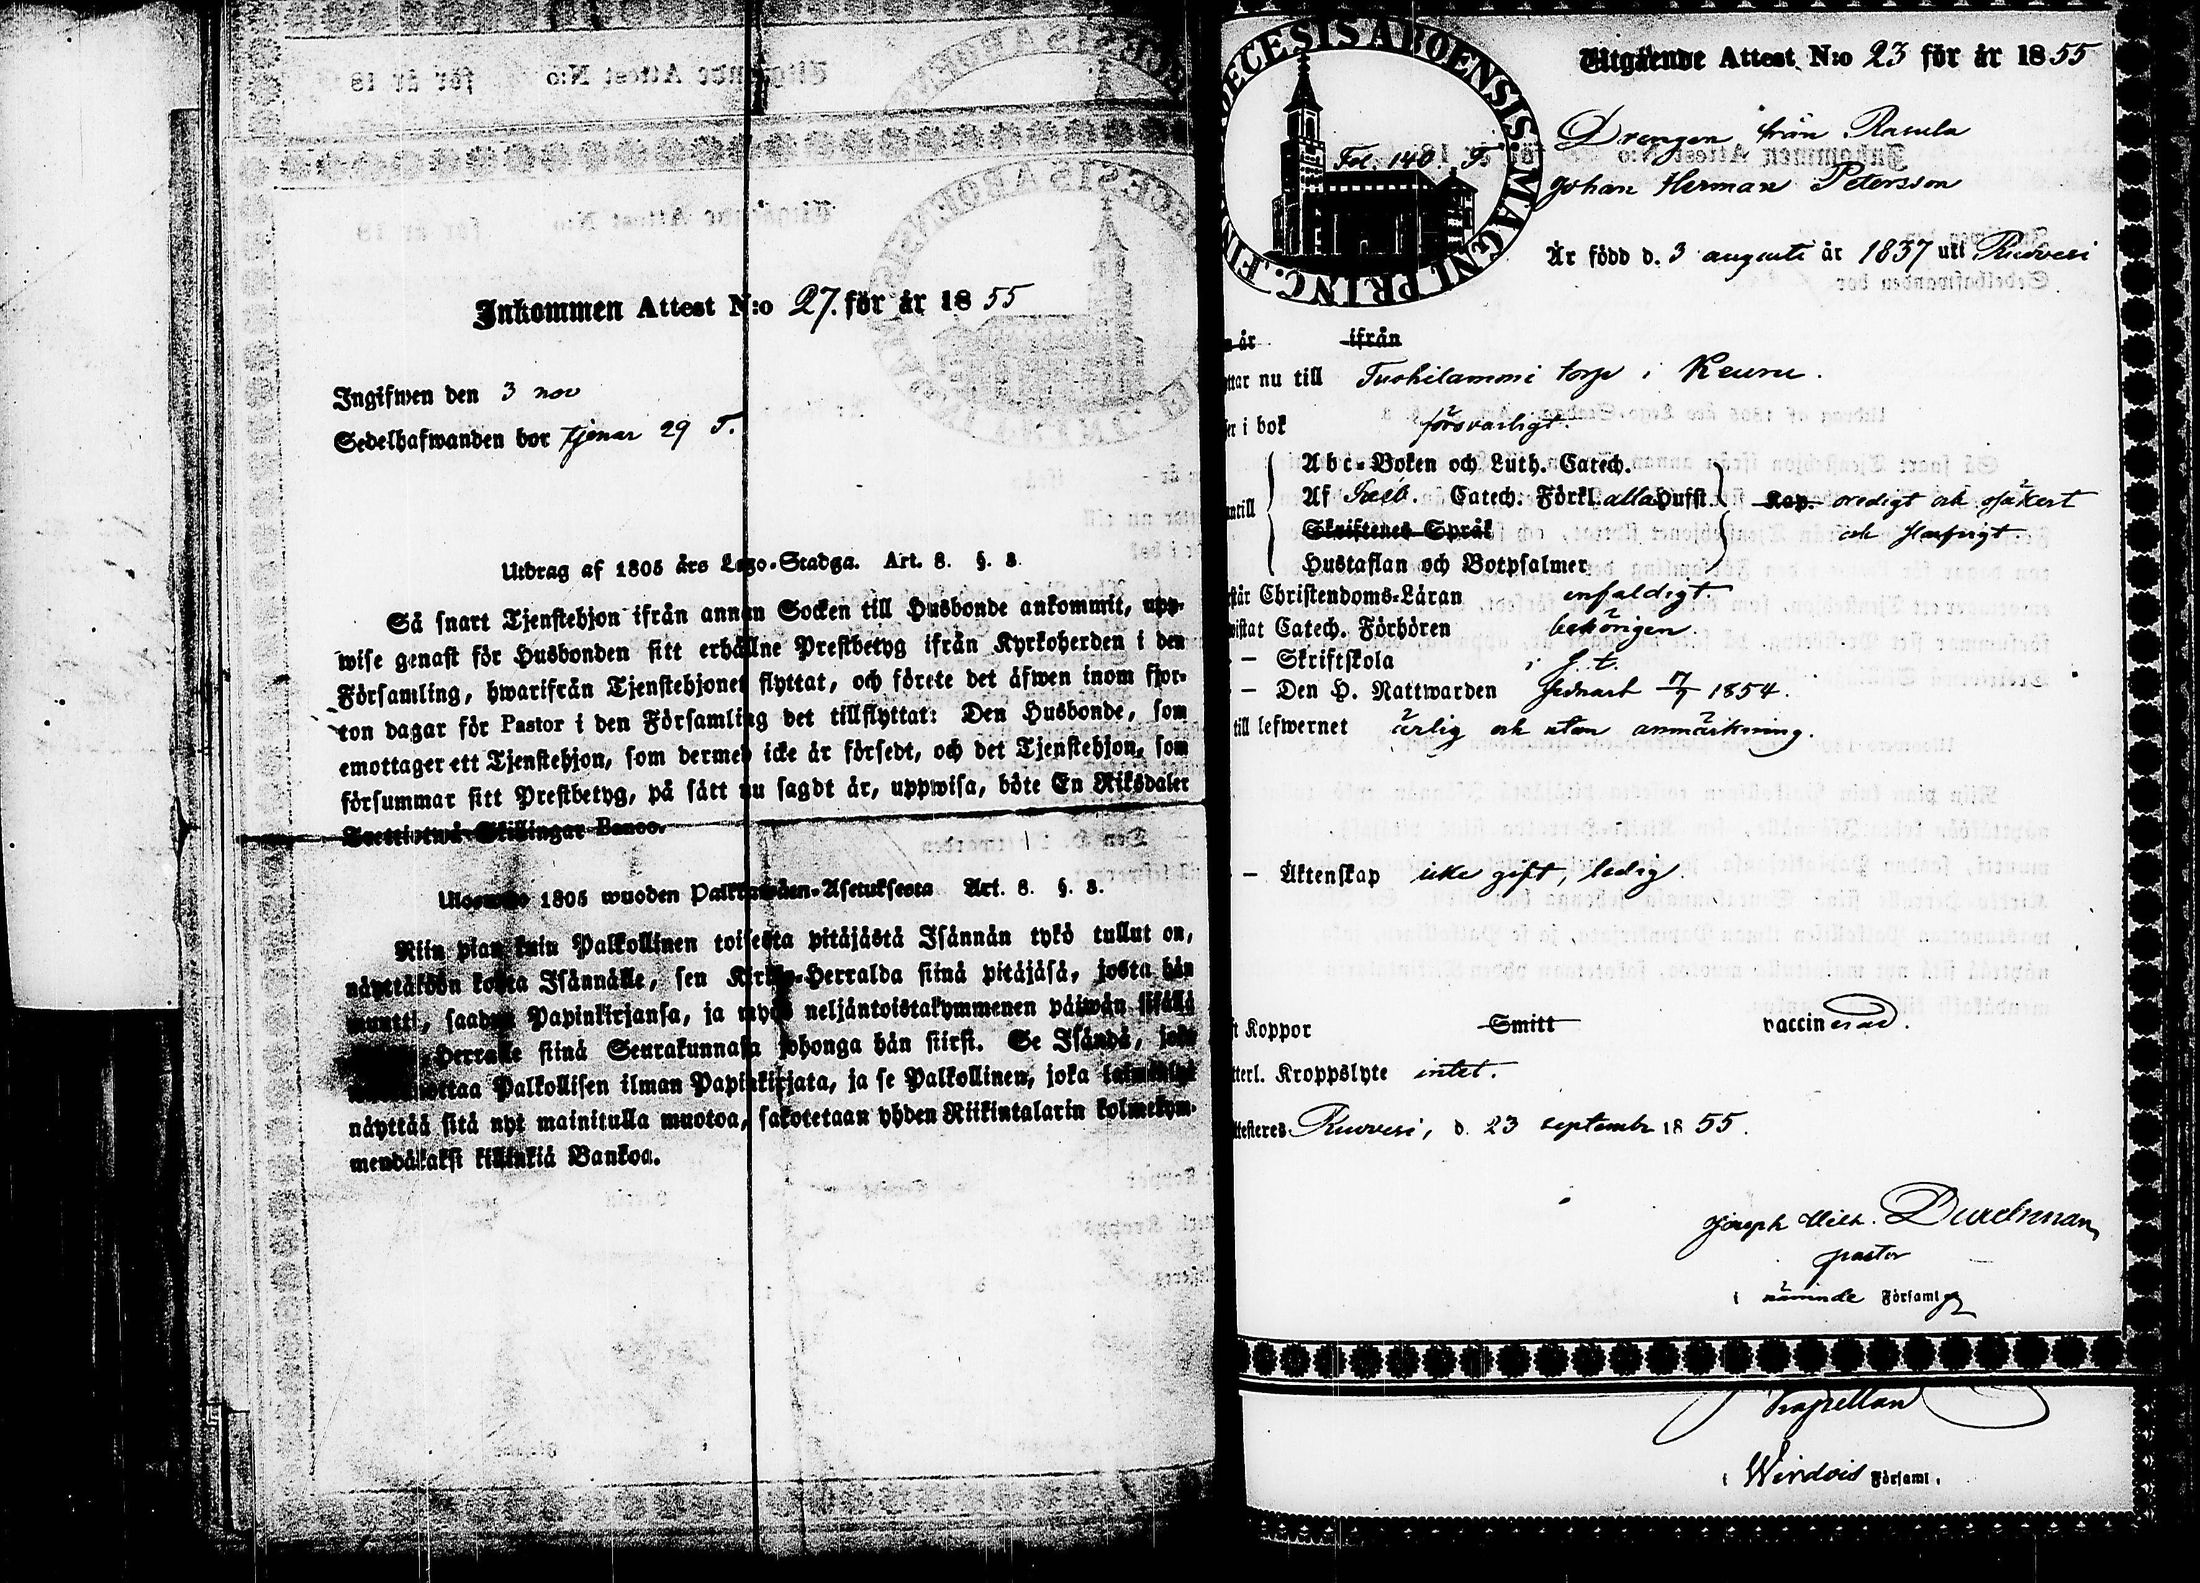 Inkommen Attest N:o 27. för år 1855
Ingifwen den 3 nov
Sedelhafwanden bor tjenar 29 T.
Utdrag af 1805 års Lego-Stadga. Art. 8. §. 8.
Så snart Tjenstehjon ifrån annan Socken till Husbonde ankommit, upp-
wise genast för Husbonden sitt erhållne Prestbetyg ifrån Kyrkoherden i den
Församling, hwarifrån Tjenstehjonet flyttat, och förete det äfwen inom fjor-
ton dagar för Pastor i den Församling det tillflyttat: Den Husbonde, som
emottager ett Tjenstehjon, som dermed icke är försedt, och det Tjenstehjon, som
försummar sitt Prestbetyg, på sätt nu sagdt är, uppwisa, böte En Riksdaler
Trettiotwå Skillingar Banco.
Ulosweto 1805 wuoden Palkkawäen-Asetuksesta Art. 8. §. 8.
Niin pian kuin Palkollinen toisesta pitäjästä Isännän tykö tullut on,
näyttäköön kohta Isännälle, sen Kirkko-Herralda siinä pitäjäsä, josta hän
muutti, saadun Papinkirjansa, ja myös neljäntoistakymmenen päiwän sisällä
Herralle siinä Seurakunnasa johonga hän siirsi. Se Isändä, joka
ottaa Palkollisen ilman Papinkirjata, ja se Palkollinen, joka
näyttää sitä nyt mainitulla muotoa, sakotetaan yhden Riikintalarin kolmekym-
mendäkaksi killinkiä Bankoa.
DIECESIS ABOENSIS. MAGNI PRINC. FIN
Fol. 140. T.
Utgående Attest N:o 23 för år 1855
Drengen från Ramla
Johan Herman Petersson
Är född d. 3 augusti år 1837 uti Ruovesi
år ifrån
ttar nu till Tuohilammi torp i Keuru.
er i bok försvarligt.
Abc-Boken och Luth. Catech.
ntill Af Treb. Catech. Förkl. alla Hufst. Kap. oredigt och osäkert
Skriftenes Språk och slarfvigt.
Hustaflan och Botpsalmer
står Christendoms-Läran enfaldigt
wistat Catech. Förhören behörigen.
– Skriftskola i s. t.
– Den H. Nattwarden sednast 17/9 1854.
till lefwernet ärlig och utan anmärkning.
– Äktenskap icke gift, ledig.
t Koppor Smitt vaccinerad.
tterl. Kroppslyte intet.
ttesteres Ruovesi, d. 23 septembr 1855.
Joseph Wilh. Durchman
pastor
i nämnde Församlg
Kapellan
i Wirdois Församl.